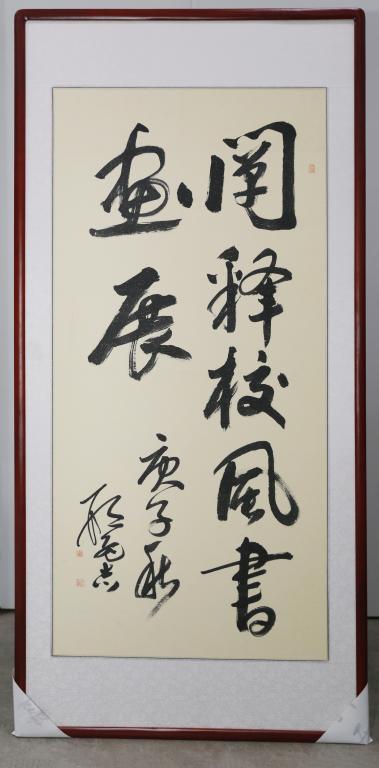 阐释校风書
画展
庚子秋